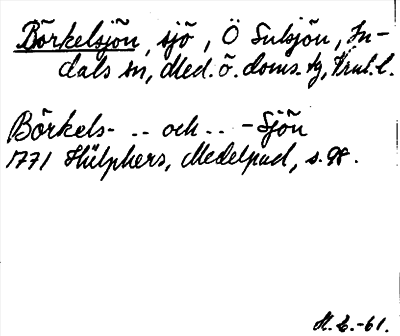 Börkelsjön, sjö, Ö Sulsjön, In-
dals sn, Med. ö. doms. tg,
Börkels- .. och .. -Sjön
1771 Hülphers, Medelpad, s. 98.
M. E. -61.